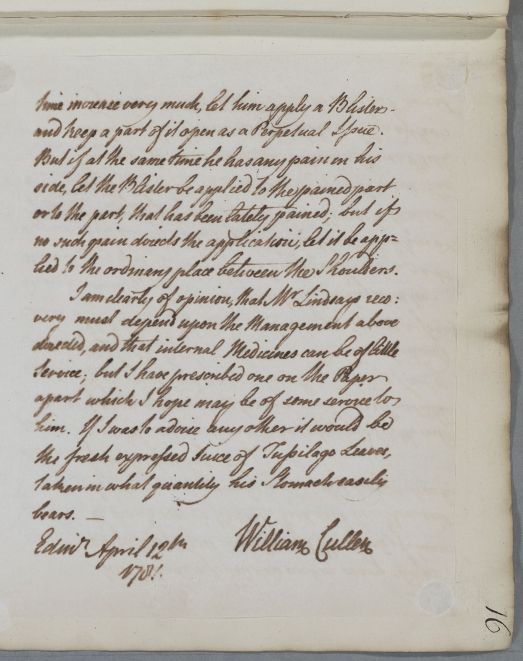 time increase very much, let him apply a Blister
and keep a part of it open as a Perpetual Issue.
But if at the same time he has any pain in his
side, let the Blister be applied to the pained part
or to the part, that has been lately pained; but if
no such pain directs the application, let it be app=
lied to the ordinary place between the Shoulders.
I am clearly of opinion, that Mr Lindsays reco:
very must depend upon the Management above
directed, and that internal Medicines can be of little
Service; but I have prescribed one on the Paper
apart which I hope may be of some service to
him. If I was to advise any other it would be
the fresh expressed Juice of Tussilago Leaves,
taken in what quantity his Stomach easily
bears. —
Edinr April 12th William Cullen
1781.
16